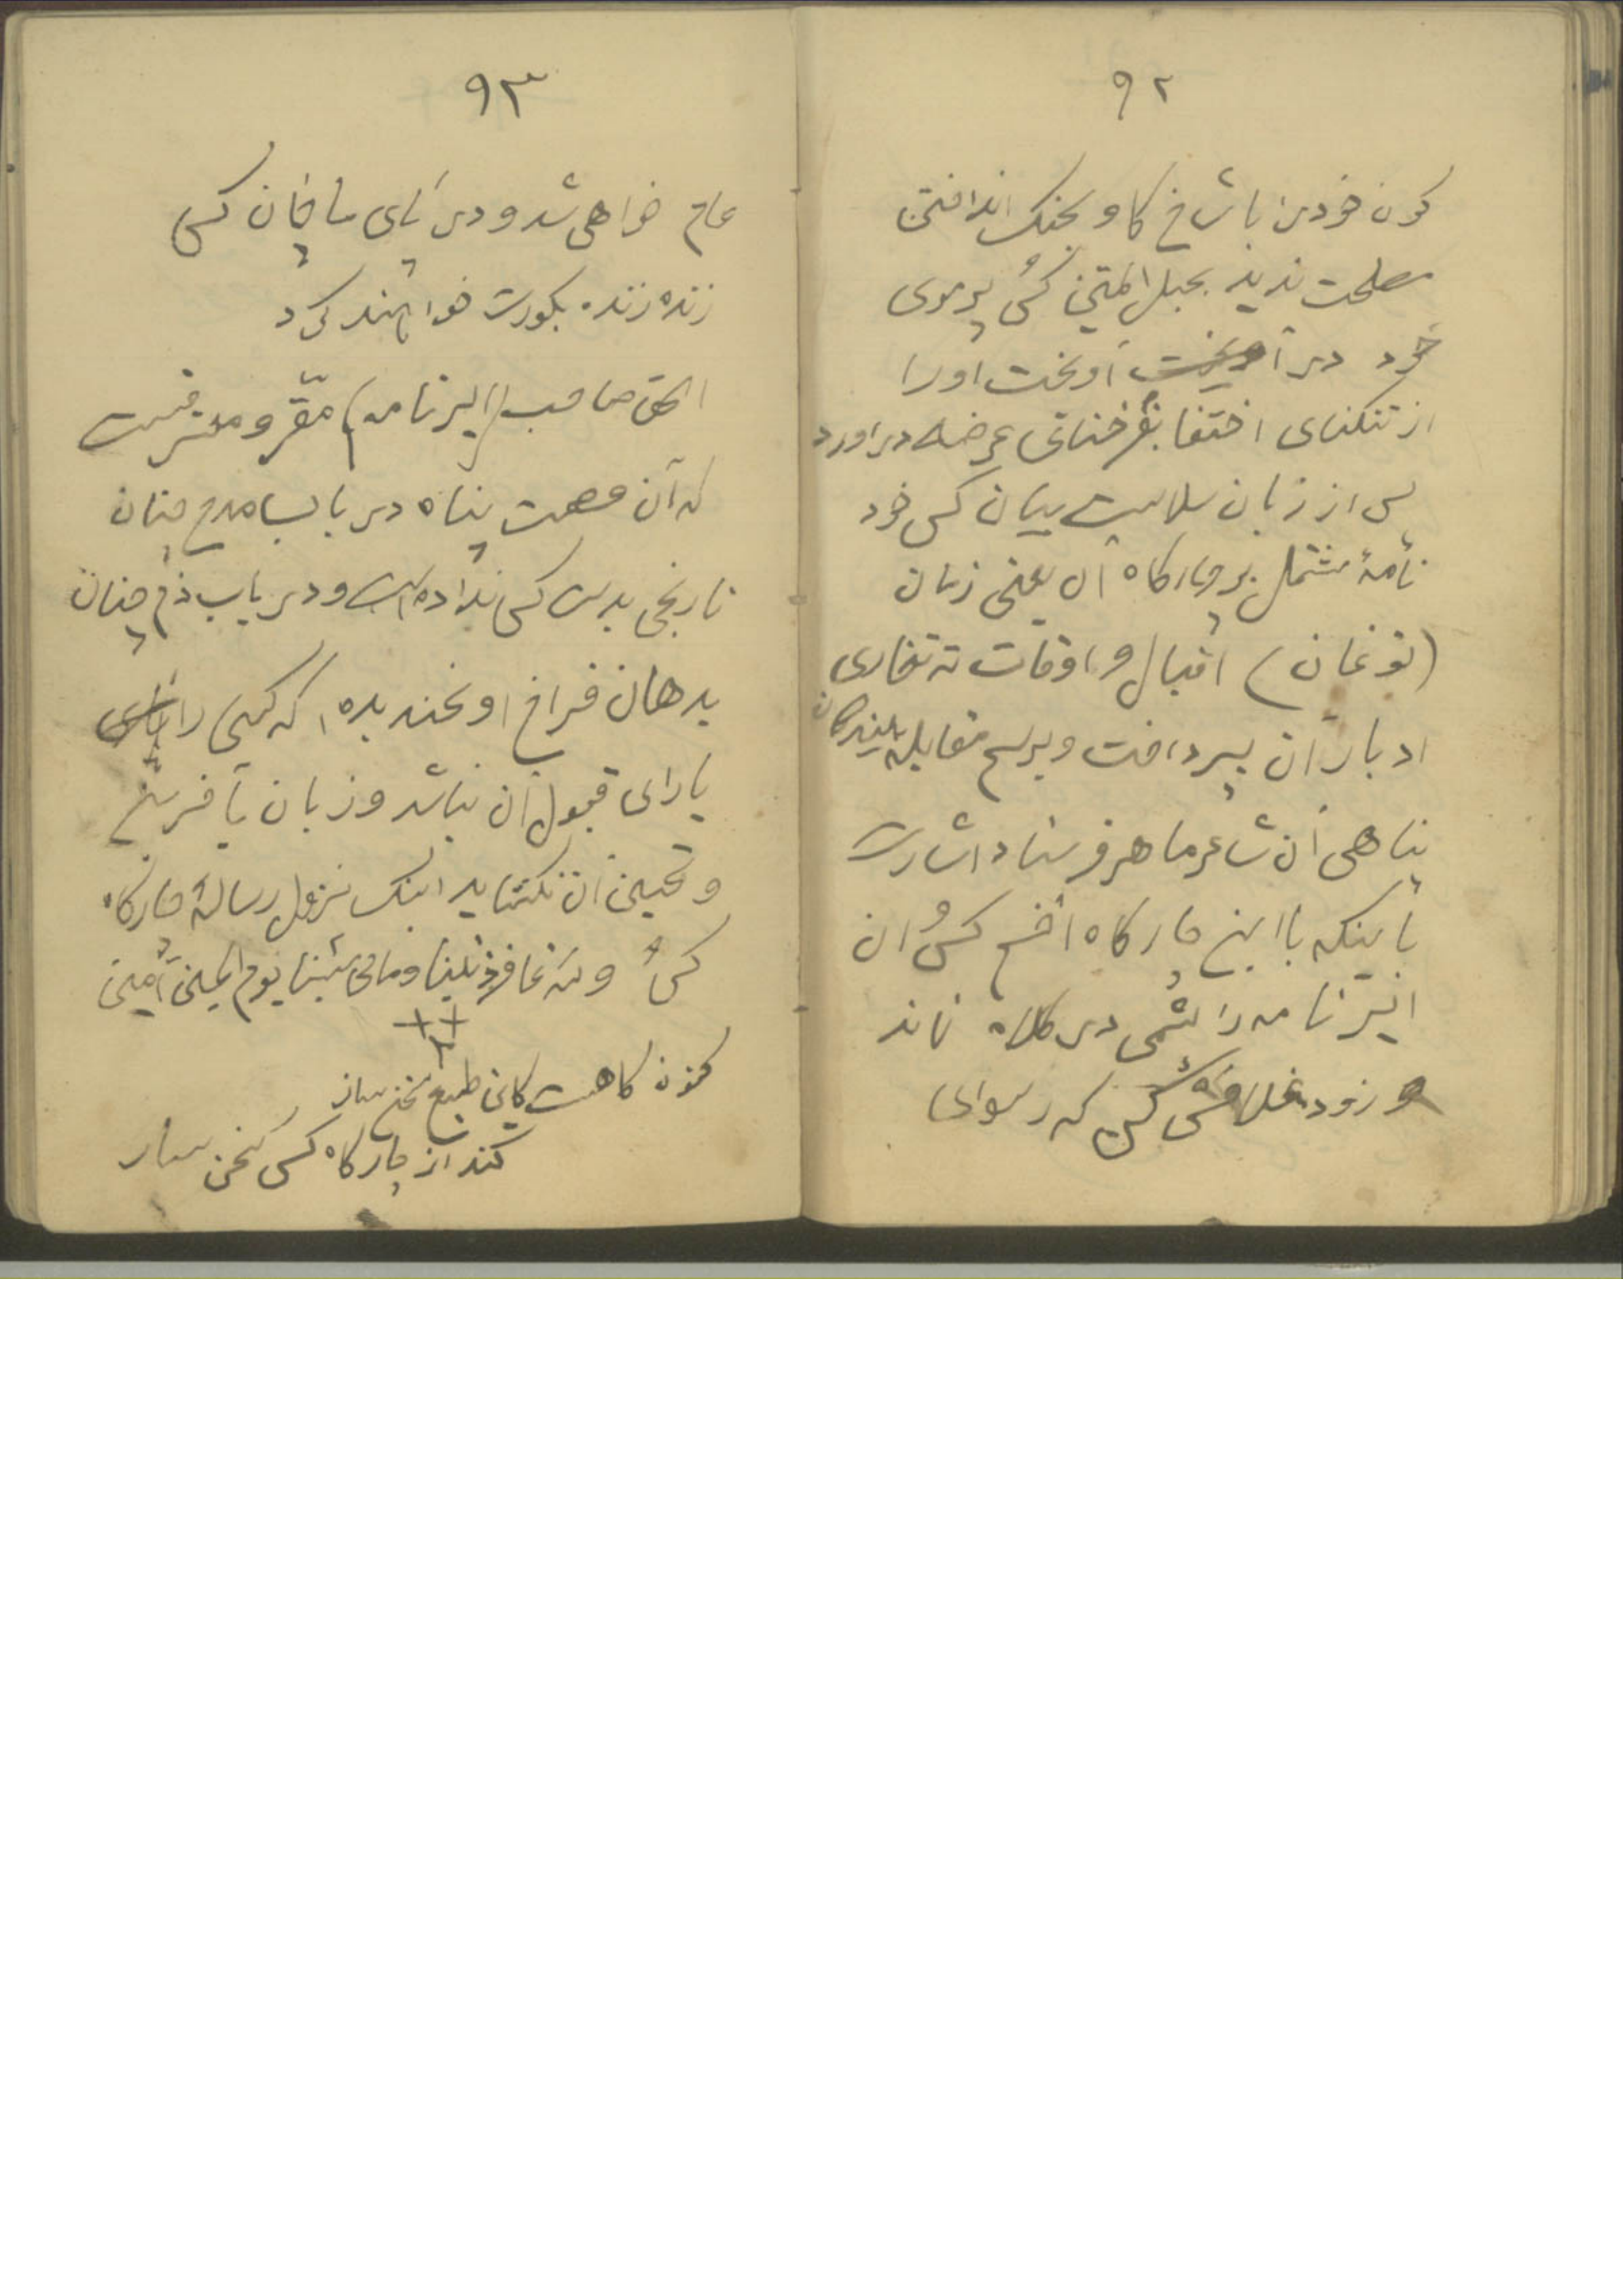 ۹۲
کون خود را با شاخ کاو بجنک انداختن
مصلحت ندید بحبل المتین کس پرموی
خود در آویخت اورا
از تنکنای اختفا بفرخنای عرضه در اورد
پس از زبان سلاست بیان کس خود
نامهٔ مشتمل بر چارکاه آن یعنی زمان
(توغان) اقبال و اوقات ته تغاری
ادبار آن پرداخت و برسم مقابله
پناهی آن شاعر ماهر فرستاد اشارت
باینکه با این چارکاه افخم کس آن
ایر نامه را پشمی در کلاه نماند
زود که رسوای
۹۳
عام خواهی شد و در پای ماچان کس
زنده زنده بکورت خواهند کرد
الحق صاحب (ایر نامه) مقر و معترفست
که آن عصمت پناه در باب مدح چنان
نارنجی بدست کسی نداده است و در باب ذم چنان
بدهان فراخ او نخندیده، که کسی را
یارای قبول آن نباشد و زبان بآفرین
و تحسین آن نکشاید اینک نزول رسالهٔ چارکاه
کس و یوم آمین
کنون کاهست کاین طبع سخن ساز
کند از چارکاه کس سخن ساز